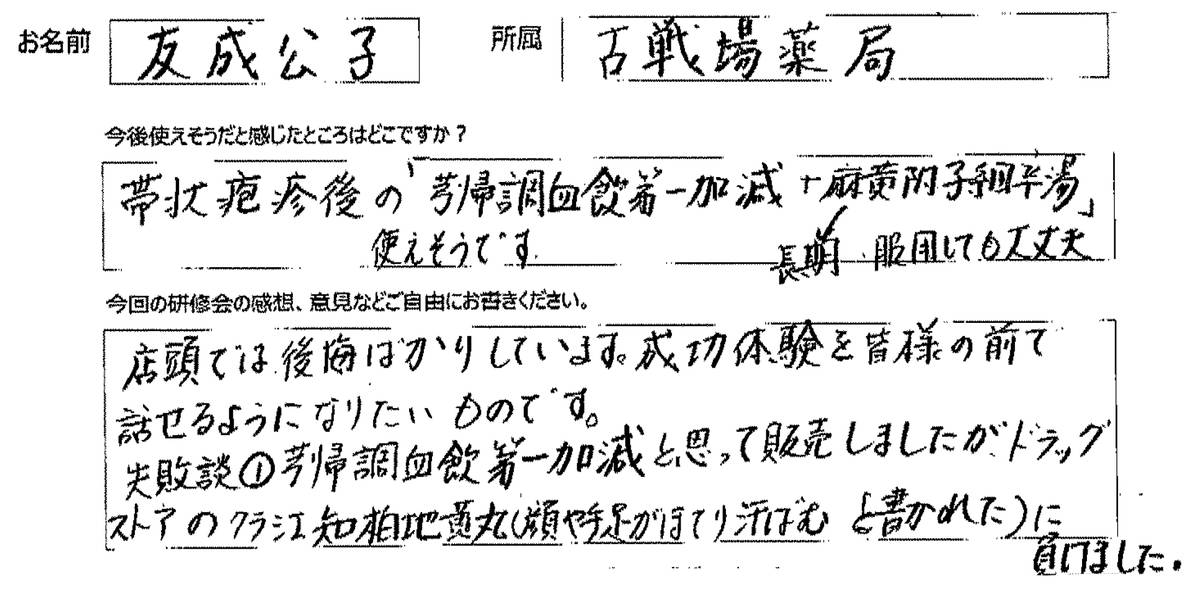 お名前 友成公子 所属 古戦場薬局
今後使えそうだと感じたところはどこですか？
帯状疱疹後の「芎帰調血飲第一加減＋麻黄附子細辛湯」
使えそうです。 長期服用しても大丈夫
今回の研修会の感想、意見などご自由にお書きください。
店頭では後悔ばかりしています。成功体験を皆様の前で
話せるようになりたいものです。
失敗談①芎帰調血飲第一加減と思って販売しましたが、ドラッグ
ストアのクラシエ知柏地黄丸(顔や手足がほてり汗ばむ と書かれた)に
負けました。